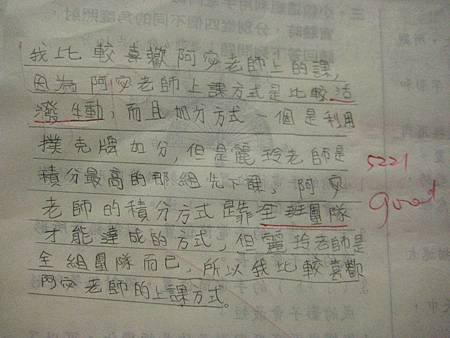 我比較喜歡阿宓老師上的課,
因為阿宓老師上課方式是比較活
潑生動,而且加分方式一個是利用
撲克牌加分,但是麗玲老師是
積分最高的那組先下課,阿宓
老師的積分方式是靠全班團隊
才能達成的方式,但麗玲老師是
全組團隊而已,所以我比較喜歡
阿宓老師的上課方式。
5221
good